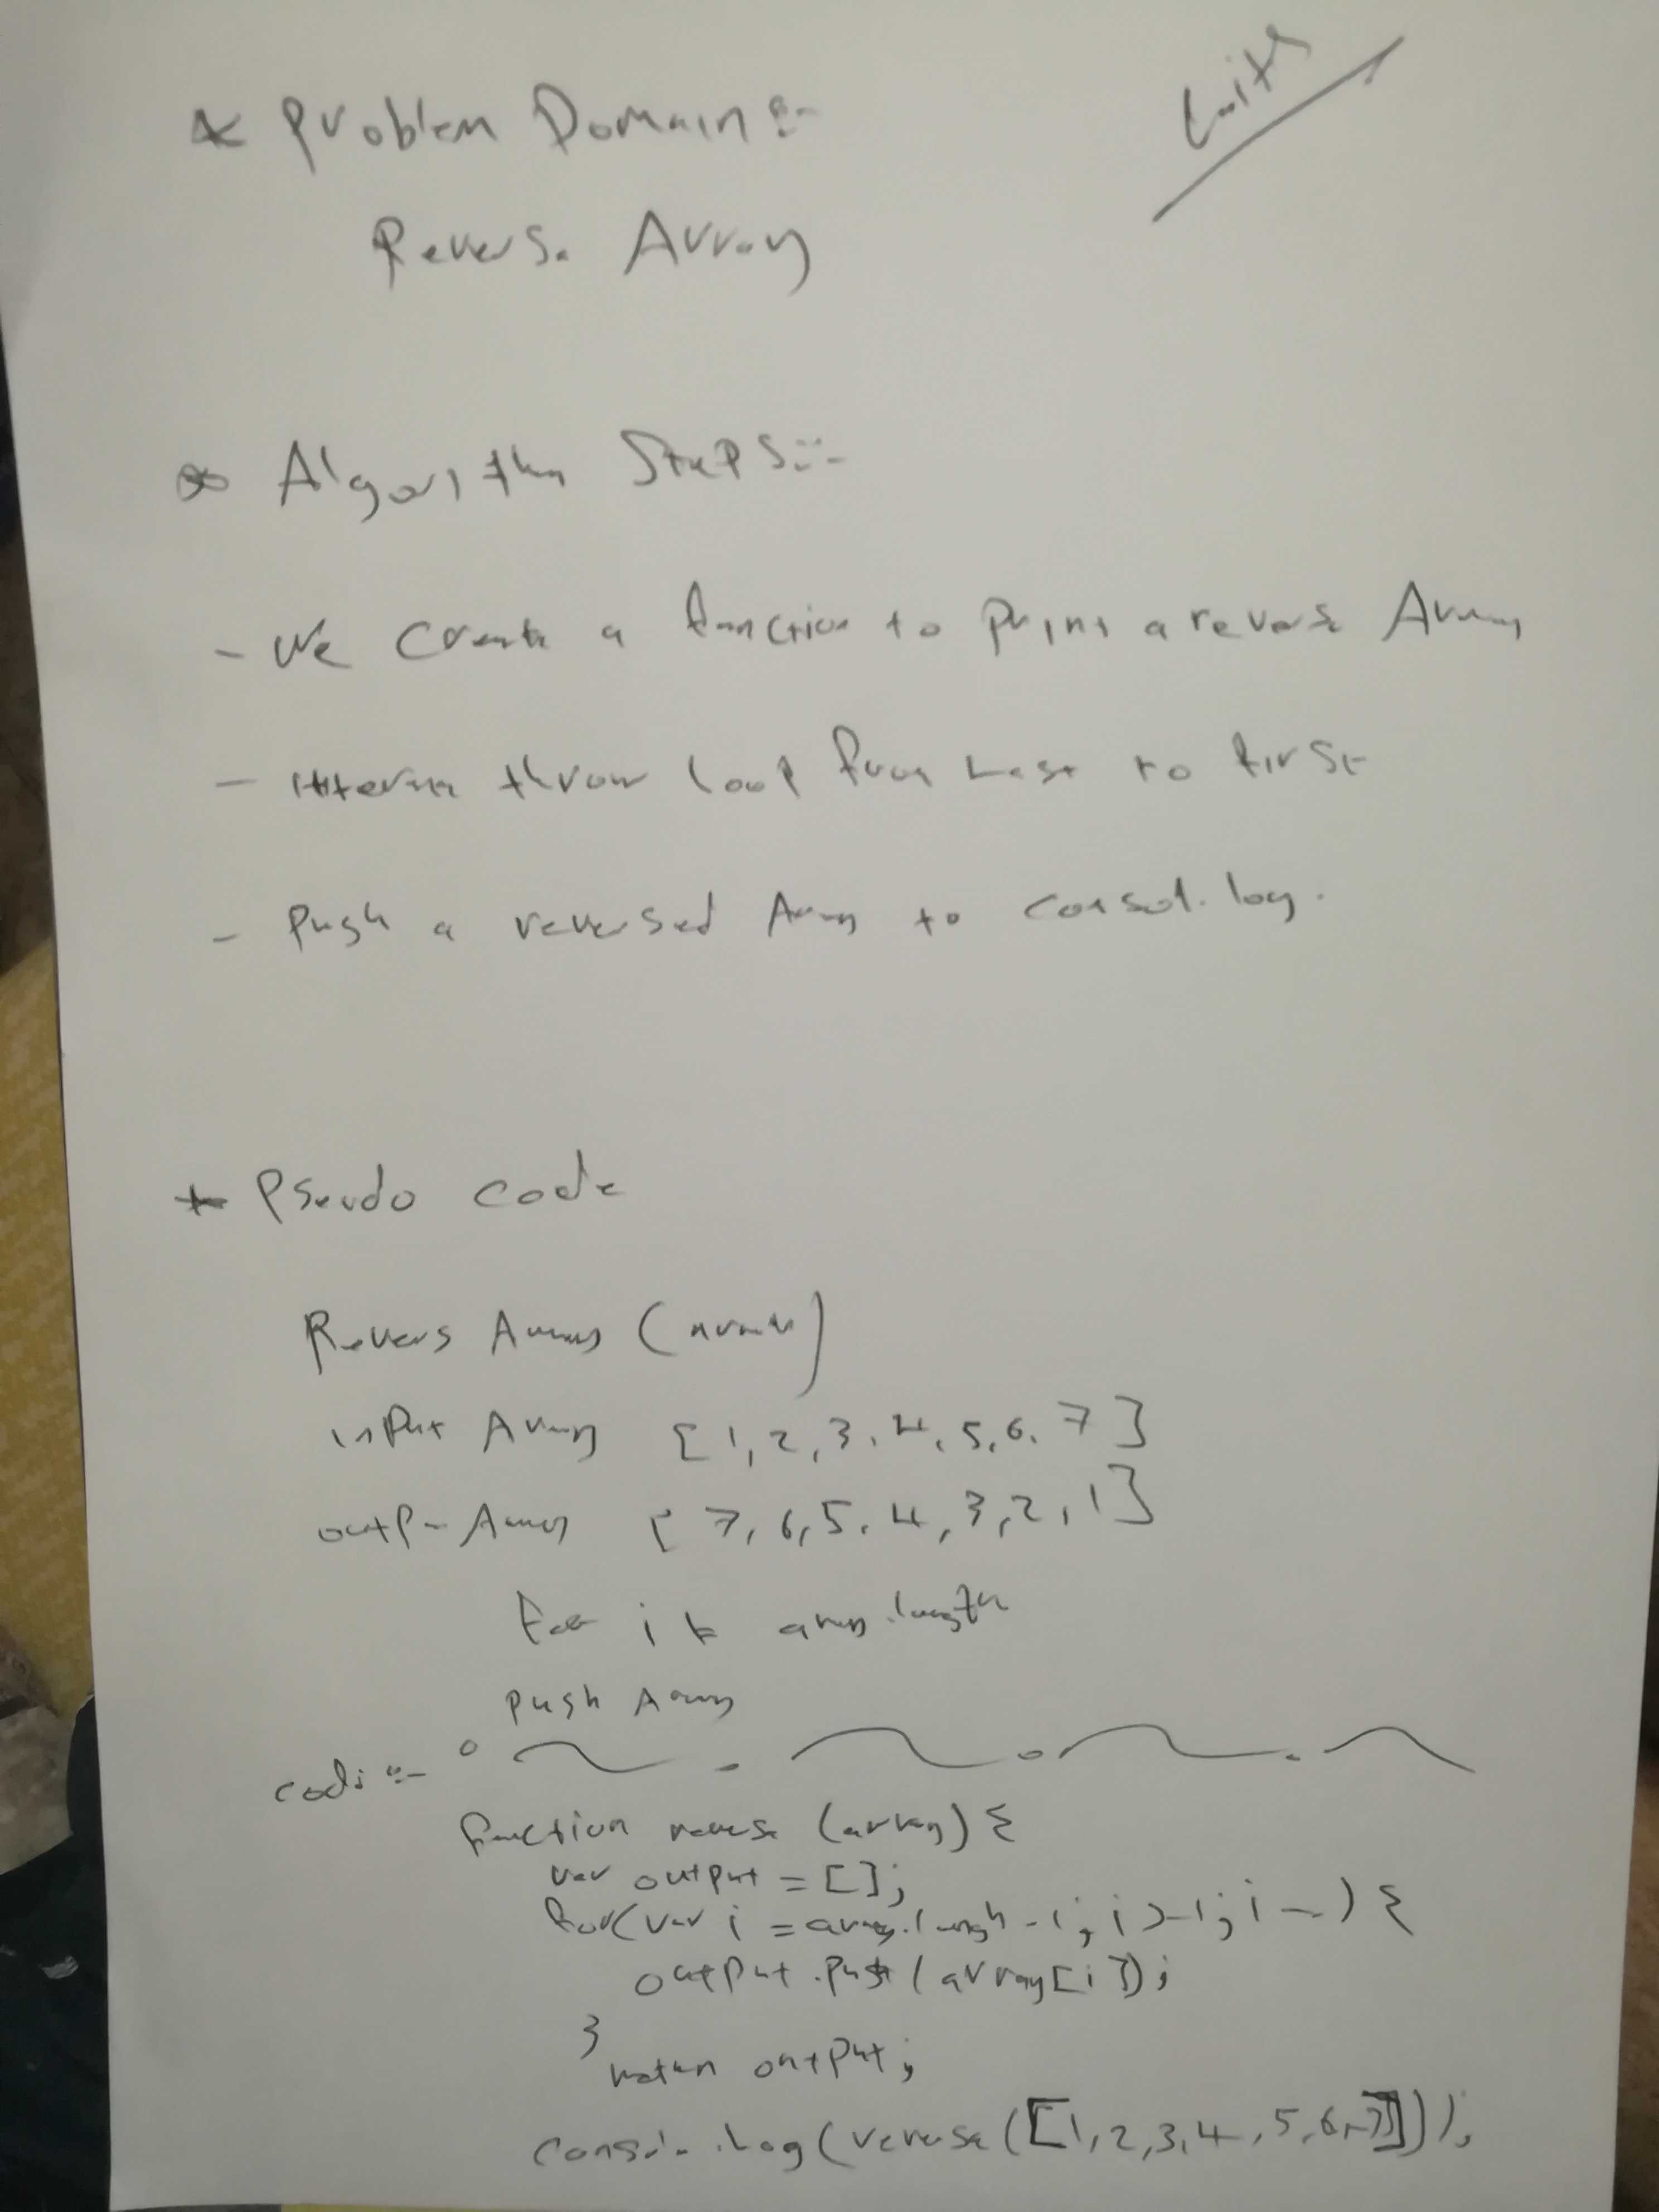 * Problem Domain :-
Reverse Array
* Algorithm Steps :-
- We Create a function to print a revers Array
- throw loop from Last to first
- Push a reversed Array to consol.log.
* Pseudo code
Revers Array (array)
input Array [1,2,3,4,5,6,7]
outp- Array [7,6,5,4,3,2,1]
For i to array.length
push Array
code :-
function reverse (array) {
var output = [];
for(var i = array.length -1; i >-1; i --) {
output.push (array[i]);
}
return output;
console.Log(reverse([1,2,3,4,5,6,7]));